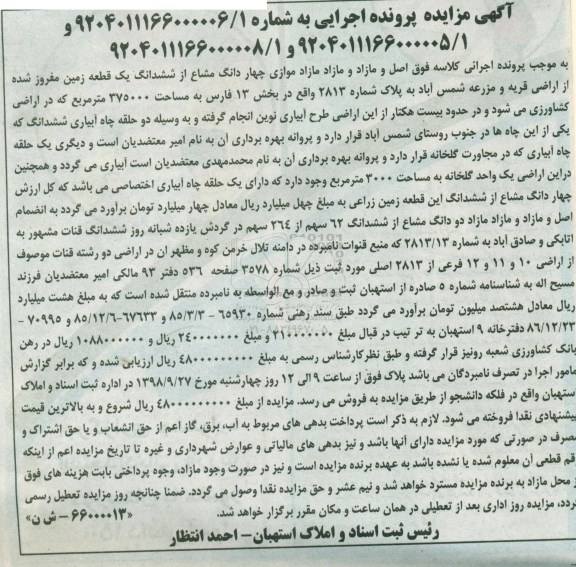 آگهی مزایده پرونده اجرایی به شماره ۹۲۰۴۰۱۱۱۶۶۰۰۰۰۰۶/۱ و
۹۲۰۴۰۱۱۱۶۶۰۰۰۰۰۵/۱ و ۹۲۰۴۰۱۱۱۶۶۰۰۰۰۰۸/۱
به موجب پرونده اجرائی کلاسه فوق اصل و مازاد و مازاد مازاد موازی چهار دانگ مشاع از ششدانگ یک قطعه زمین مفروز شده
از اراضی قریه و مزرعه شمس آباد به پلاک شماره ۲۸۱۳ واقع در بخش ۱۳ فارس به مساحت ۳۷۵۰۰۰ مترمربع که در اراضی
کشاورزی می شود و در حدود بیست هکتار از این اراضی طرح آبیاری نوین انجام گرفته و به وسیله دو حلقه چاه آبیاری ششدانگ که
یکی از این چاه ها در جنوب روستای شمس آباد قرار دارد و پروانه بهره برداری آن به نام امیر معتضدیان است و دیگری یک حلقه
چاه آبیاری که در مجاورت گلخانه قرار دارد و پروانه بهره برداری آن به نام محمدمهدی معتضدیان است آبیاری می گردد و همچنین
دراین اراضی یک واحد گلخانه به مساحت ۳۰۰۰ مترمربع وجود دارد که دارای یک حلقه چاه آبیاری اختصاصی می باشد که کل ارزش
چهار دانگ مشاع از ششدانگ این قطعه زمین زراعی به مبلغ چهل میلیارد ریال معادل چهار میلیارد تومان برآورد می گردد به انضمام
اصل و مازاد و مازاد مازاد دو دانگ مشاع از ششدانگ ۶۲ سهم از ۲۶۴ سهم در گردش یازده شبانه روز ششدانگ قنات مشهور به
اتابکی و صادق آباد به شماره ۲۸۱۳/۱۳ که منبع قنوات نامبرده در دامنه تلال خرمن کوه و مظهر ان در اراضی دو رشته قنات موصوف
از اراضی ۱۰ و ۱۱ و ۱۲ فرعی از ۲۸۱۳ اصلی مورد ثبت ذیل شماره ۳۵۷۸ صفحه ۵۳۶ دفتر ۹۳ مالکی امیر معتضدیان فرزند
مسیح اله به شناسنامه شماره ۵ صادره از استهبان ثبت و صادر و مع الواسطه به نامبرده منتقل شده است که به مبلغ هشت میلیارد
ریال معادل هشتصد میلیون تومان برآورد می گردد طبق سند رهنی شماره ۶۵۹۳۰ - ۸۵/۳/۳ و ۶۷۶۳۳-۸۵/۱۲/۶ و ۷۰۹۹۵ -
۸۶/۱۲/۲۳ دفترخانه ۹ استهبان به تر تیب در قبال مبلغ ۲۱۰۰۰۰۰۰۰ و مبلغ ۲۴۰۰۰۰۰۰۰ ریال و ۱۰۸۸۰۰۰۰۰۰ ریال در رهن
بانک کشاورزی شعبه رونیز قرار گرفته و طبق نظرکارشناس رسمی به مبلغ ۴۸۰۰۰۰۰۰۰۰۰ ریال ارزیابی شده و که برابر گزارش
مامور اجرا در تصرف نامبردگان می باشد پلاک فوق از ساعت ۹ الی ۱۲ روز چهارشنبه مورخ ۱۳۹۸/۹/۲۷ در اداره ثبت اسناد و املاک
استهبان واقع در فلکه دانشجو از طریق مزایده به فروش می رسد. مزایده از مبلغ ۴۸۰۰۰۰۰۰۰۰۰ ریال شروع و به بالاترین قیمت
پیشنهادی نقدا فروخته می شود. لازم به ذکر است پرداخت بدهی های مربوط به آب، برق، گاز اعم از حق انشعاب و یا حق اشتراک و
مصرف در صورتی که مورد مزایده دارای آنها باشد و نیز بدهی های مالیاتی و عوارض شهرداری و غیره تا تاریخ مزایده اعم از اینکه
رقم قطعی آن معلوم شده یا نشده باشد به عهده برنده مزایده است و نیز در صورت وجود مازاد، وجوه پرداختی بابت هزینه های فوق
از محل مازاد به برنده مزایده مسترد خواهد شد و نیم عشر و حق مزایده نقدا وصول می گردد. ضمنا چنانچه روز مزایده تعطیل رسمی
گردد، مزایده روز اداری بعد از تعطیلی در همان ساعت و مکان مقرر برگزار خواهد شد. «۶۶۰۰۰۱۳ – ش ن»
رئیس ثبت اسناد و املاک استهبان- احمد انتظار